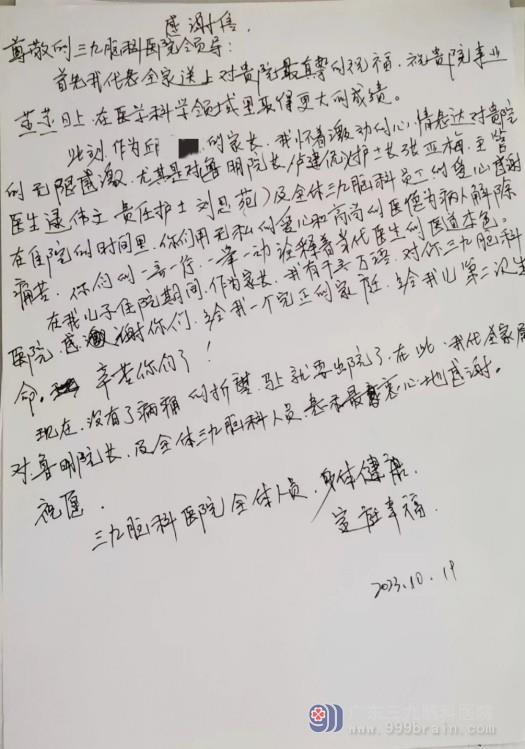 感谢信
尊敬的三九脑科医院领导:
首先我代表全家送上对贵院最真挚的祝福,祝贵院事业
蒸蒸日上,在医学科学领域里取得更大的成绩。
此刻,作为邱 的家长,我怀着激动的心情表达对贵院
的无限感激,尤其是对鲁明院长,卢建侃,护士长张亚梅,主管
医生逯伟文,责任护士刘思苑)及全体三九脑科员工的爱心感谢
在住院的时间里,你们用无私的爱心和高尚的医德为病人解除
痛苦,你们的一言一行,一举一动诠释着当代医生的医道本色。
在我儿子住院期间,作为家长,我有千言万语,对你三九脑科
医院,感谢你们,给我一个完正的家庭,给我儿第二次生
命。辛苦你们了!
现在,没有了病痛的折磨,马上就要出院了,在此,我代全家属
对鲁明院长,及全体三九脑科人员表示最衷心地感谢。
祝愿,
三九脑科医院全体人员,身体健康,
家庭幸福,
2023.10.19
广东三九脑科医院
www.999brain.com